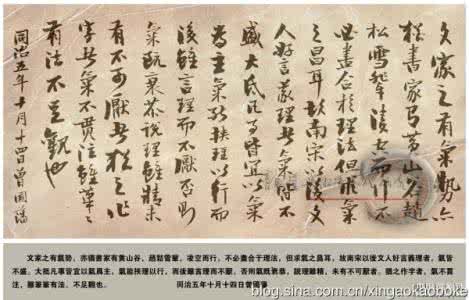 文家之有氣勢亦
猶書家有黃山谷趙
松雪輩凌空而行不
必盡合於理法但求氣
之昌耳故南宋以後文
人好言義理者氣皆不
盛大抵凡事皆宜以氣
為主氣能挾理以行而
後雖言理而不厭否則
氣既衰苶說理雖精未
有不可厭者猶之作
字者氣不貫注雖筆筆
有法不足觀也
同治五年十月十四曾國藩
文家之有氣勢，亦猶書家有黃山谷、趙鬆雪輩，凌空而行，不必盡合于理法，但求氣之昌耳，故南宋以後文人好言義理者，氣皆
不盛，大抵凡事皆宜以氣爲主，氣能挾理以行，而後雖言理而不厭，否則氣既衰苶，説理雖精，未有不可厭者，猶之作字者，氣不貫
注，雖筆筆有法，不足觀也。 同治五年十月十四日曾國藩
blog.sina.com.cn/xingaokaobooke